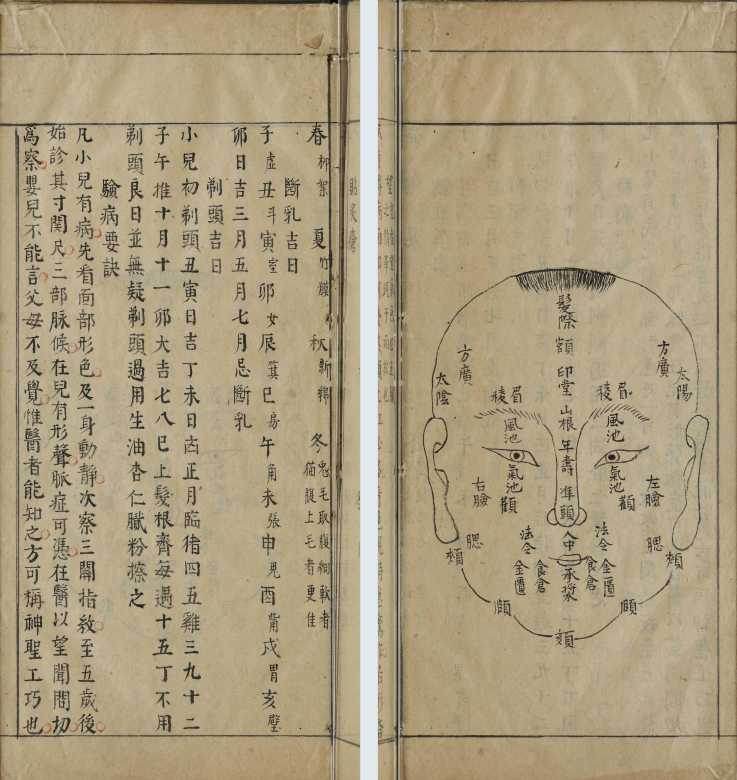 髮際
額
印堂
山根
年壽
準頭
人中
承漿
頦
太陽
方廣
眉
稜
風池
氣池
顴
左臉
腮
頰
法令
金匱
食倉
頤
方廣
太陰
眉
稜
風池
氣池
顴
右臉
腮
頰
法令
金匱
食倉
頤
春柳絮 夏竹膜 秋新綿 冬兔毛取腹細軟者猫腹上毛者更佳
斷乳吉日
子虛丑斗寅室卯女辰箕巳房午角未張申鬼酉觜戌胃亥壁
卯日吉三月五月七月忌斷乳
剃頭吉日
小兒初剃頭丑寅日吉丁未日凶正月臨猪四五雞三九十二
子午推十月十一卯大吉七八巳上髮根齊每遇十五丁不用
剃頭良日並無疑剃頭過用生油杏仁膩粉擦之
驗病要訣
凡小兒有病先看面部形色及一身動靜次察三關指紋至五歲後
始診其寸関尺三部脉候在兒有形聲脈症可憑在醫以望聞問切
爲察嬰兒不能言父母不及覺惟醫者能知之方可稱神聖工巧也